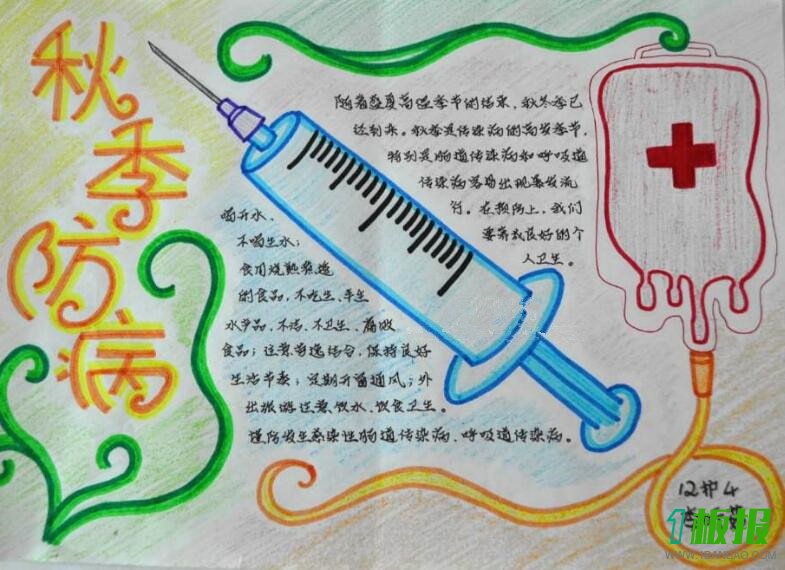 秋季防病
随着炎夏高温季节的结束,秋冬季已
经到来。秋季是传染病的高发季节,
特别是肠道传染病和呼吸道
传染病容易出现暴发流
行。在预防上,我们
要养成良好的个
人卫生。
喝开水、
不喝生水;
食用烧熟煮透
的食品,不吃生、半生
水产品,不洁、不卫生、腐败
食品;注意劳逸结合,保持良好
生活节奏;定期开窗通风;外
出旅游注意饮水、饮食卫生。
谨防发生感染性肠道传染病、呼吸道传染病。
12护4
1板报
WWW.1BANBAO.COM